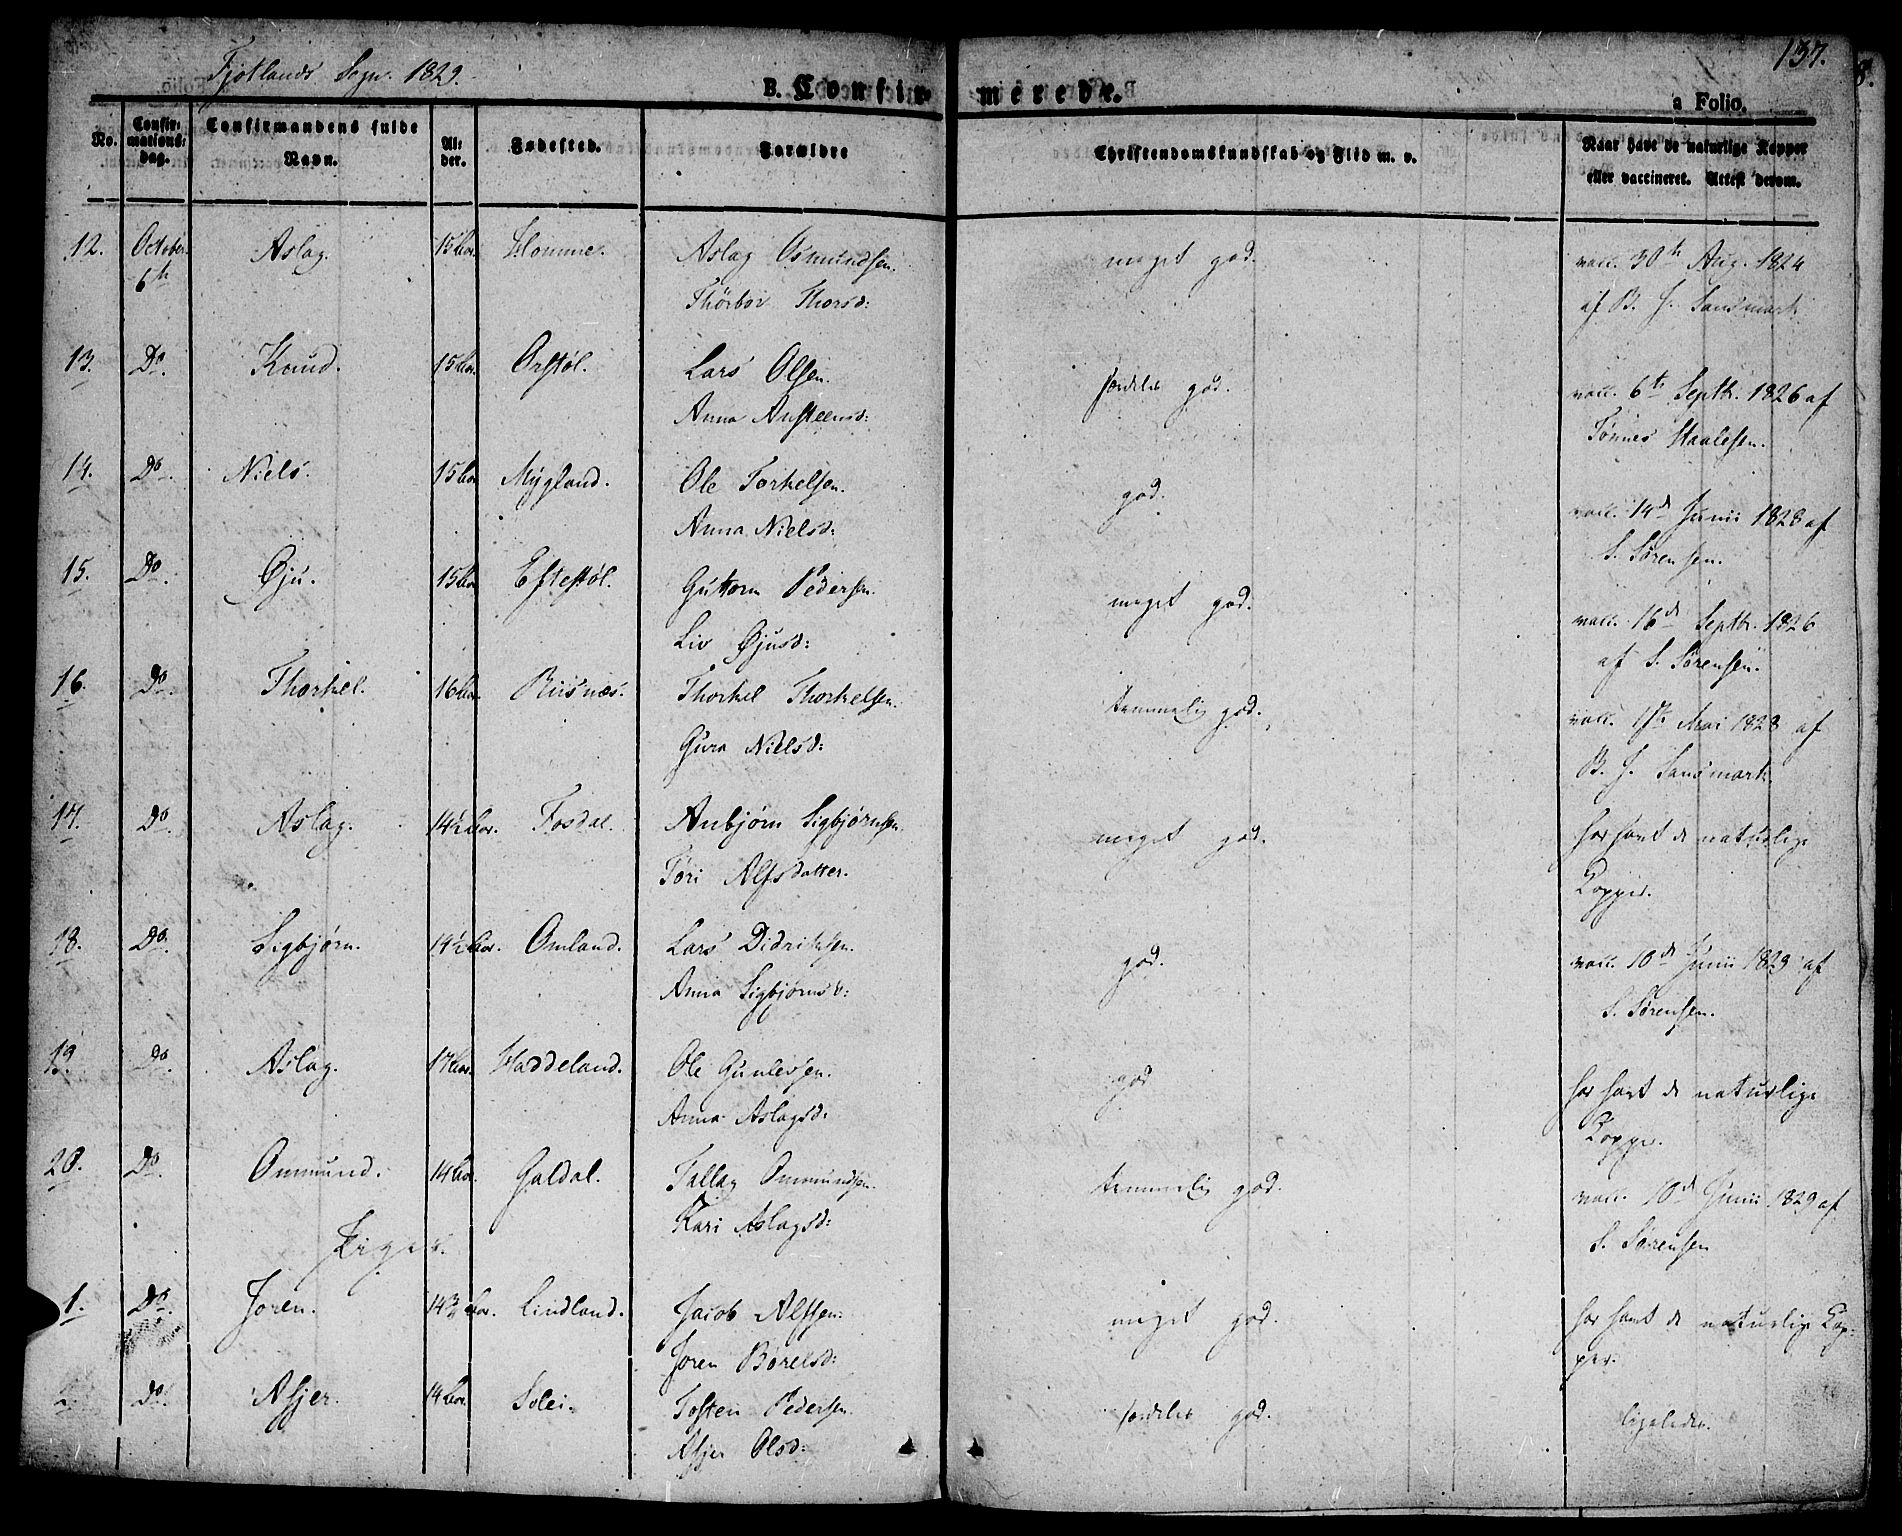 137.
Fjotlands Sogn. 1829.
B. Confirmerede.
a Folio.
No. Confirmationsdag. Confirmandens fulde Navn. Alder. Fødested. Forældre Christendomskundskab og Flid m. v. Naar havt de naturlige Kopper eller vaccineret. Attest derom.
12. October 6th Aslag. 15 Aar. Homme. Aslag Osmundsen. meget god. vacc. 30th Aug. 1824
Thørbor Thorsd: af B. H. Sandsmark
13. Do. Knud. 15 Aar. Orstøl. Lars Olsen. særdeles god. vacc. 6te Septbr. 1826 af
Anna Ansteensd: Tønnes Staalesen.
14. Do. Niels. 15 Aar Mygland. Ole Torkelsen. god. vacc. 14d Junii 1828 af
Anna Nielsd: S. Sørensen.
15. Do. Øju. 15 Aar Eftestøl. Guttorm Pedersen. meget god. vacc. 16d Septbr. 1826
Liv Øjusd: af S. Sørensen.
16. Do. Thorkel. 16 Aar. Riisnæs. Thorkel Thorkelsen. temmelig god. vacc. 17de Mai 1828 af
Gura Nielsd: B. H. Sandsmark.
17. Do. Aslag. 14½ Aar. Fosdal. Anbjørn Sigbjørnsen. meget god. har havt de naturlige
Tøri Alfsdatter. Kopper.
18. Do. Sigbjørn. 14½ Aar. Omland. Lars Didriksen. god. vacc. 10d Junii 1829 af
Anna Sigbjørnsd: S. Sørensen.
19. Do. Aslag. 17 Aar. Haddeland. Ole Gunlevsen. god har havt de naturlige
Anna Aslagsd: Kopper.
20. Do Ommund. 14 Aar. Galdal. Tallag Ommundsen. temmelig god. vacc. 10d Junii 1829 af
Kari Aslagsd: S. Sørensen
Piger.
1. Do. Joren. 14¾ Aar. Lindland. Jacob Alfsen: meget god. har havt de naturlige Kop-
Joren Børelsd: per.
2. Do. Asjer. 14 Aar. Solei. Tosten Pedersen. særdeles god. ligeledes.
Asjer Olsd: